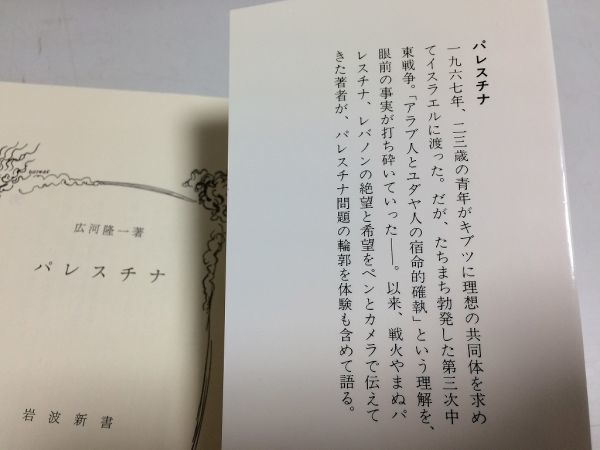 パレスチナ
一九六七年、二三歳の青年がキブツに理想の共同体を求め
てイスラエルに渡った。だが、たちまち勃発した第三次中
東戦争。「アラブ人とユダヤ人の宿命的確執」という理解を、
眼前の事実が打ち砕いていった――。以来、戦火やまぬパ
レスチナ、レバノンの絶望と希望をペンとカメラで伝えて
きた著者が、パレスチナ問題の輪郭を体験も含めて語る。
広河隆一著
パレスチナ
岩波新書